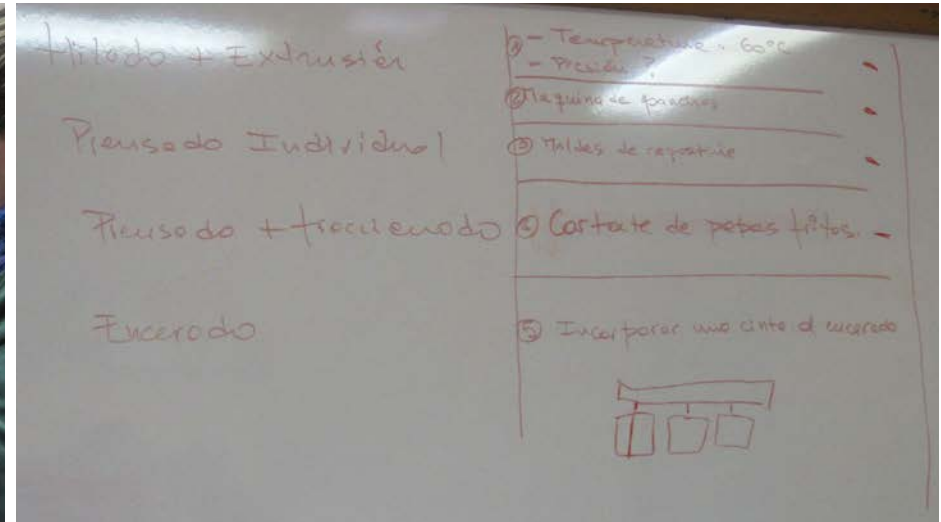 Hilado + Extrusión
Prensado Individual
Prensado + fraccionado
Encerado
① - Temperatura 60°C
- Presión ?
② Maquina de
③ Moldes de reposteria
④ Cortate de papas fritas
⑤ Incorporar una cinta al encerado